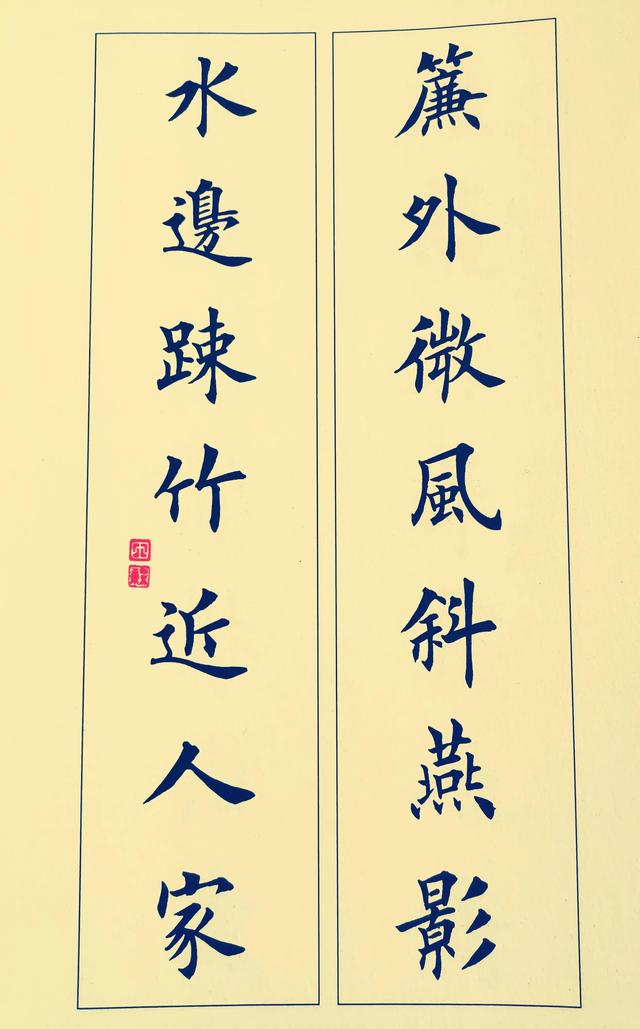 簾外微風斜燕影
水邊踈竹近人家